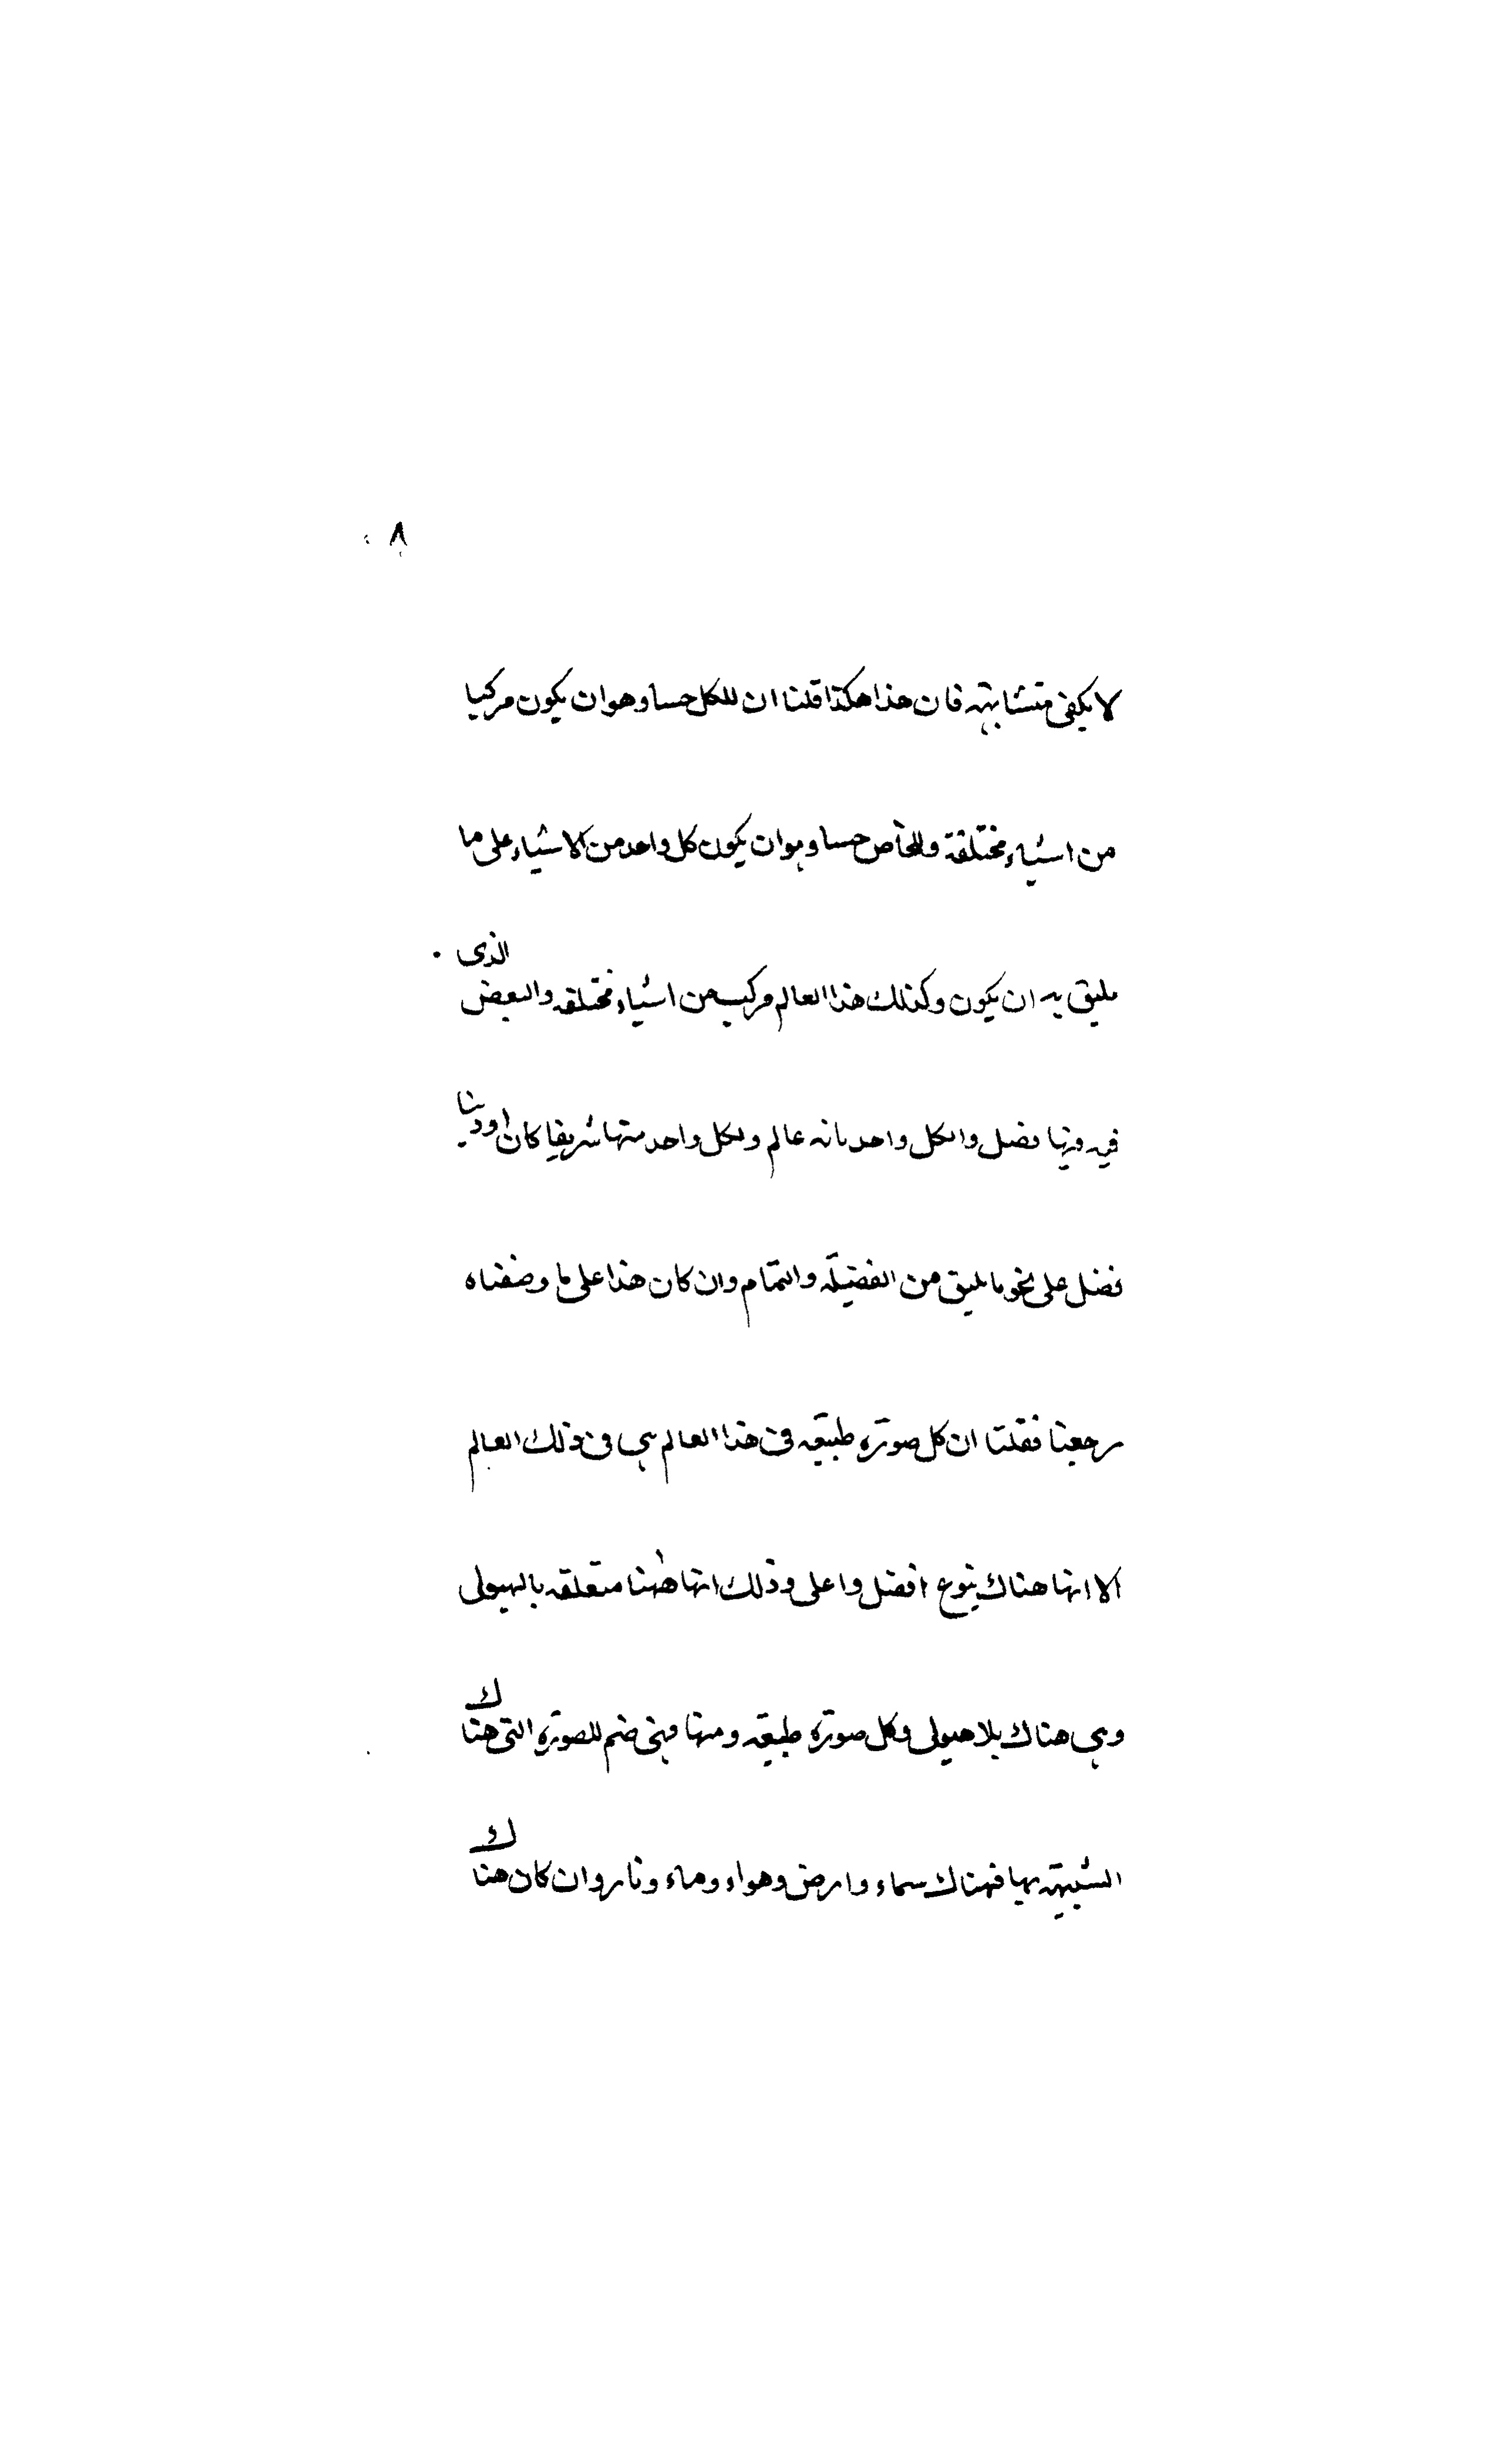 ٨
لا يكفى متشابهته فان هذا هكذا قلنا ان للكل حسنا وهو ان يكون مركبا
من اشياء مختلفة وللخاص حسنا وهو ان يكون كل واحد من الاشياء على ما
يليق به ان يكون وكذلك هذا العالم مركب من اشياء مختلفه والبعض الذى
فيه فيها فضل والكل واحد بانه عالم ولكل واحد منها شريفا كان او دنيا
فضل على نحو ما يليق من الفضيلة والتمام وان كان هذا على ما وصفناه
رجعنا فقلنا ان كل صورة طبيعيه فى هذا العالم هى فى ذلك العالم
الا انها هناك بنوع افضل واعلى وذلك انها ههنا متعلقه بالهيولى
وهى هناك بلا هيولى وكل صورة طبيعيه ومنها فهى صنم للصورة التى هناك
الشبيهة بها فهناك سماء وارض وهواء وماء ونار وان كان هناك